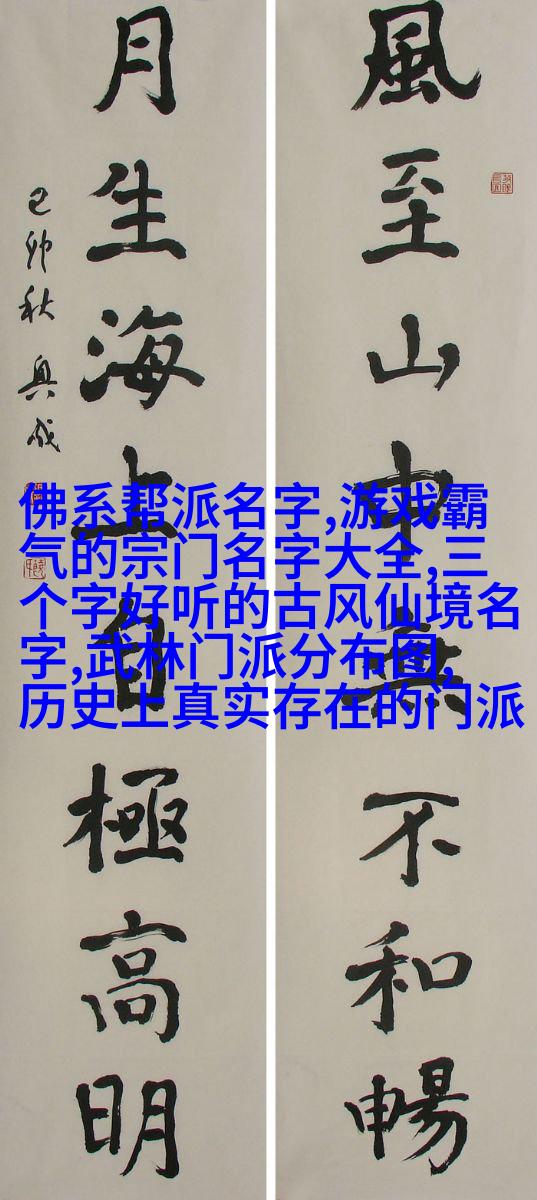 風至山中無不和暢
月生海上自極高明
己卯秋
佛系帮派名字,游戏霸
气的宗门名字大全,三
个字好听的古风仙境名
字,武林门派分布图,
历史上真实存在的门派